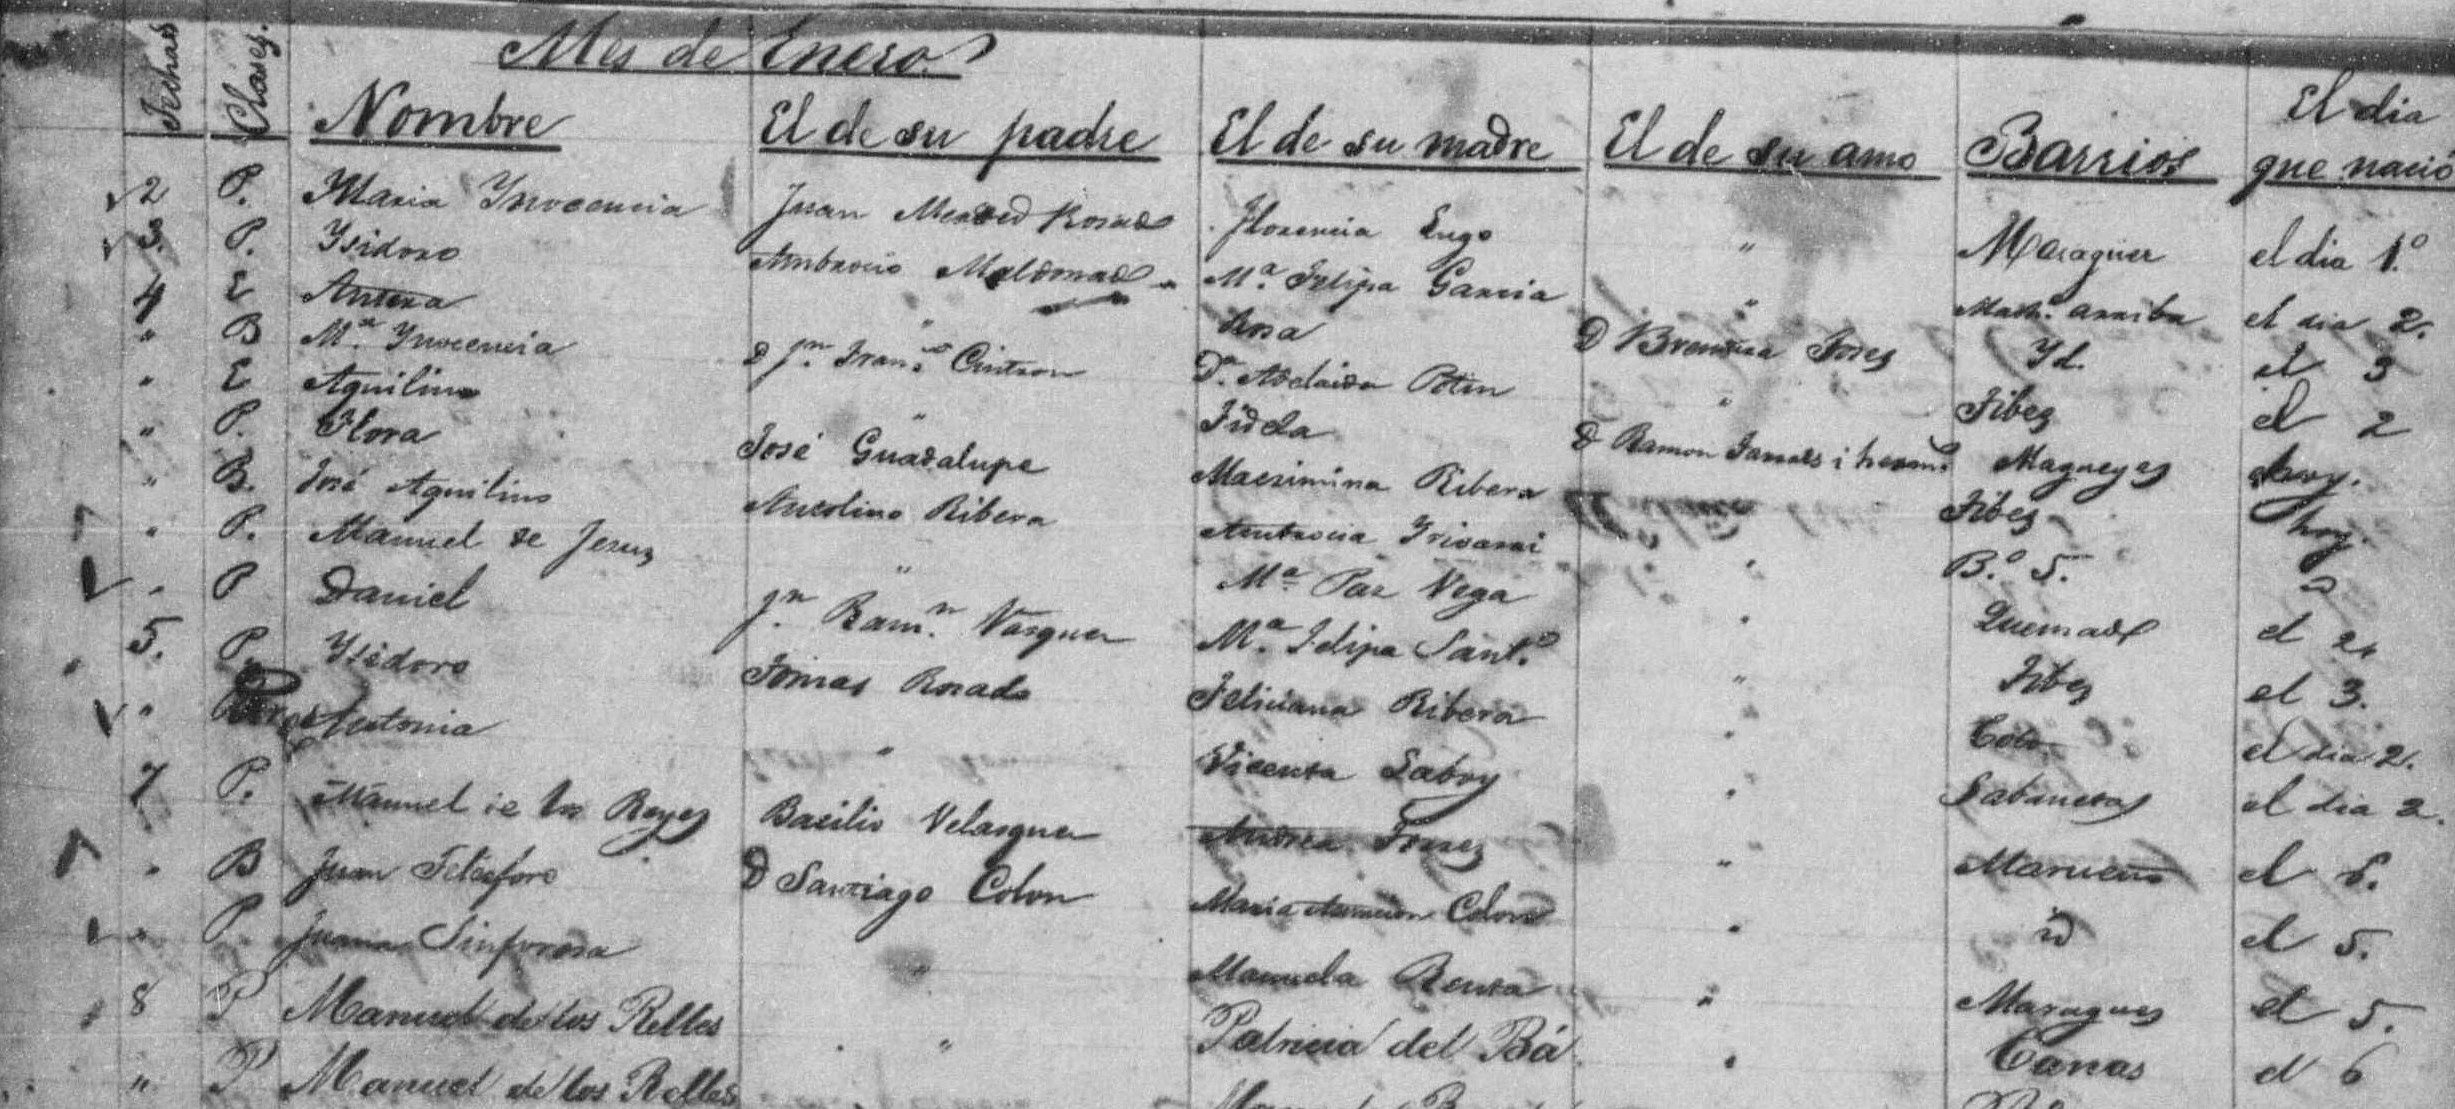 Mes de Enero
Fechas Clases. Nombre El de su padre El de su madre El de su amo Barrios El dia que nació
2 P. Maria Ynocencia Juan Merced Rosado Florencia Lugo " Maraguez el dia 1.º
3. P. Ysidoro Ambrocio Maldonado Mª. Felipa Garcia " Mach.º arriba el dia 2.
4 E Antera " Rosa D Torres Yd. el 3
" B Mª. Ynocencia D Jn. Fran.co Cintron Dª. Adelaida Potin " Tibes el 2
" E Aquilino " Fidela D Ramon i herm.º Magueyes hoy.
" P. Flora José Guadalupe Macsimina Ribera Tibes hoy.
" B. José Aquilino Ancolino Ribera Ambrocia Yrisarri " B.º 5.
" P. Manuel de Jesus " Mª Paz Vega " Quemado el 2
" P Daniel Jn. Ram.n Vasquez Mª. Felipa Sant.º " Tibes el 3.
5. P. Ysidoro Tomas Rosado Feliciana Ribera " Coto el dia 2.
" Antonia " Vicenta Laboy " Sabanetas el dia 2.
7 P. Manuel de los Reyes Basilio Velasquez Andrea Torres " Marueño el 6.
" B Juan Telesforo D Santiago Colon Maria Asuncion Colon " id el 5.
" P. Juana Sinforosa " Manuela Renta " Maragues el 5.
8 P Manuel de los Relles " Patricia del Bá " Canas el 6
" P Manuel de los Relles